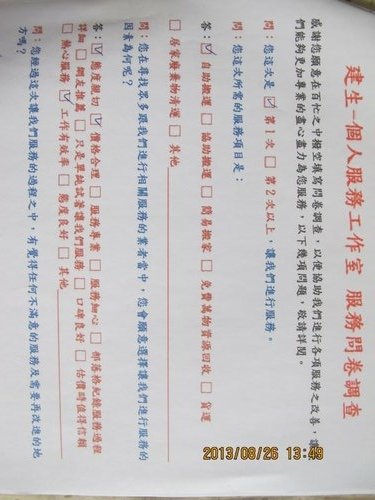 建生-個人服務工作室 服務問卷調查
感謝您願意在百忙之中撥空填寫問卷調查，以便協助我們進行各項服務之改善，讓
們能夠更加專業的盡心盡力為您服務，以下幾項問題，敬請詳閱。
問：您這次是 ☑ 第1次 □ 第2次以上，讓我們進行服務。
問：您這次所需的服務項目是：
答：☑ 自助搬運 □ 協助搬運 □ 簡易搬家 □ 免費舊物資源回收 □ 貨運
□ 居家廢棄物清運 □ 其他
問：您在尋找眾多跟我們進行相關服務的業者當中，您會願意選擇讓我們進行服務的
因素為何呢？
答：☑ 態度親切 ☑ 價格合理 □ 服務專業 □ 服務細心 □ 部落格紀錄服務過程
詳細 □ 網友推薦 □ 只是單純試著讓我們服務 □ 口碑良好 □ 估價時值得信賴
□ 熱心服務 ☑ 工作有效率 □ 態度良好 □ 其他
問：您經過這次讓我們服務的過程之中，有覺得任何不滿意的服務及需要再改進的地
方嗎？
2013/08/26 13:49